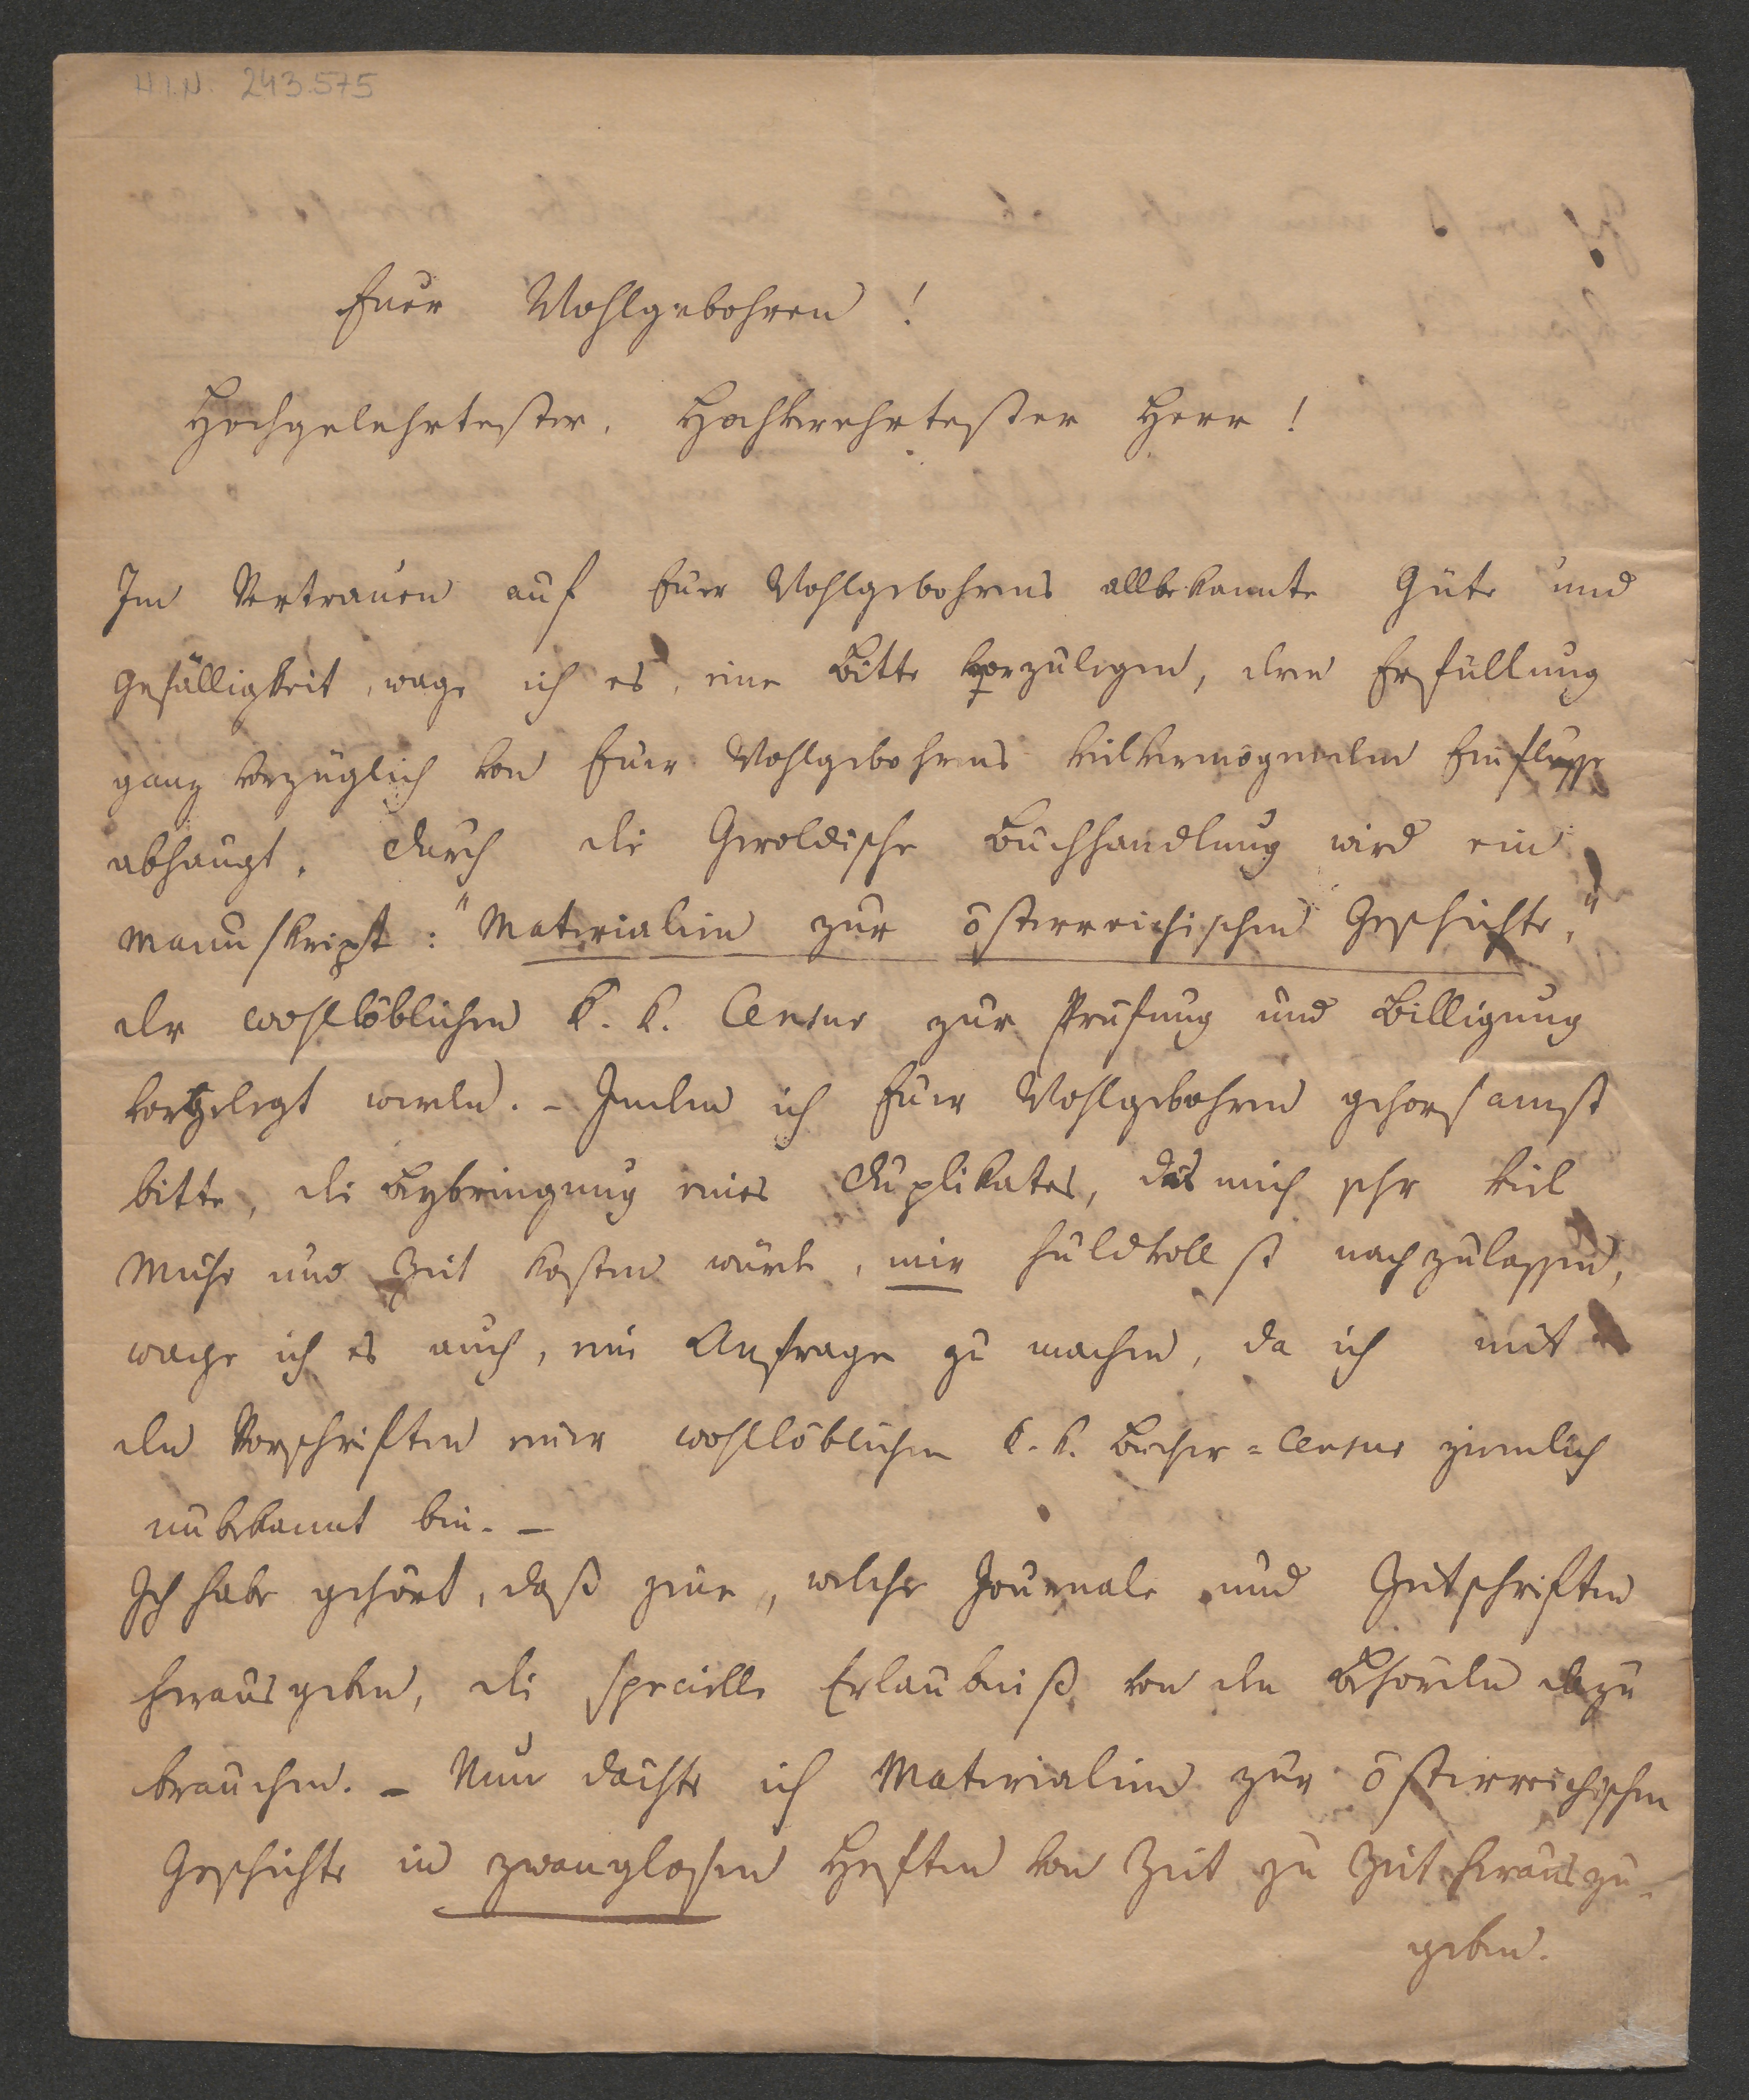 H.I.N. 243.575
Euer Wohlgebohren!
Hochgelehrtester, Hochverehrtester Herr!
Im Vertrauen auf Euer Wohlgebohrens allbekannte Güte und
Gefälligkeit, wage ich es, eine Bitte vorzulegen, deren Erfüllung
ganz vorzüglich von Euer Wohlgebohrens vielvermögenden Einflusse
abhangt. Durch die Geroldische Buchhandlung wird ein
Manuskript: "Materialien zur österreichischen Geschichte,"
der wohllöblichen k. k. Censur zur Prüfung und Billigung
vorgelegt werden. – Indem ich Euer Wohlgebohren gehorsamst
bitte, die Beybringung eines Duplikates, das mich sehr viel
Mühe und Zeit kosten würde, mir huldvollst nachzulassen,
wage ich es auch, eine Anfrage zu machen, da ich mit
den Vorschriften einer wohllöblichen k. k. Bücher=Censur ziemlich
unbekannt bin. –
Ich habe gehört, daß jene, welche Journale und Zeitschriften
herausgeben, die specielle Erlaubniß von den Behörden dazu
brauchen. – Nun dächte ich Materialien zur österreichischen
Geschichte in zwanglosen Heften von Zeit zu Zeit herauszu-
geben.